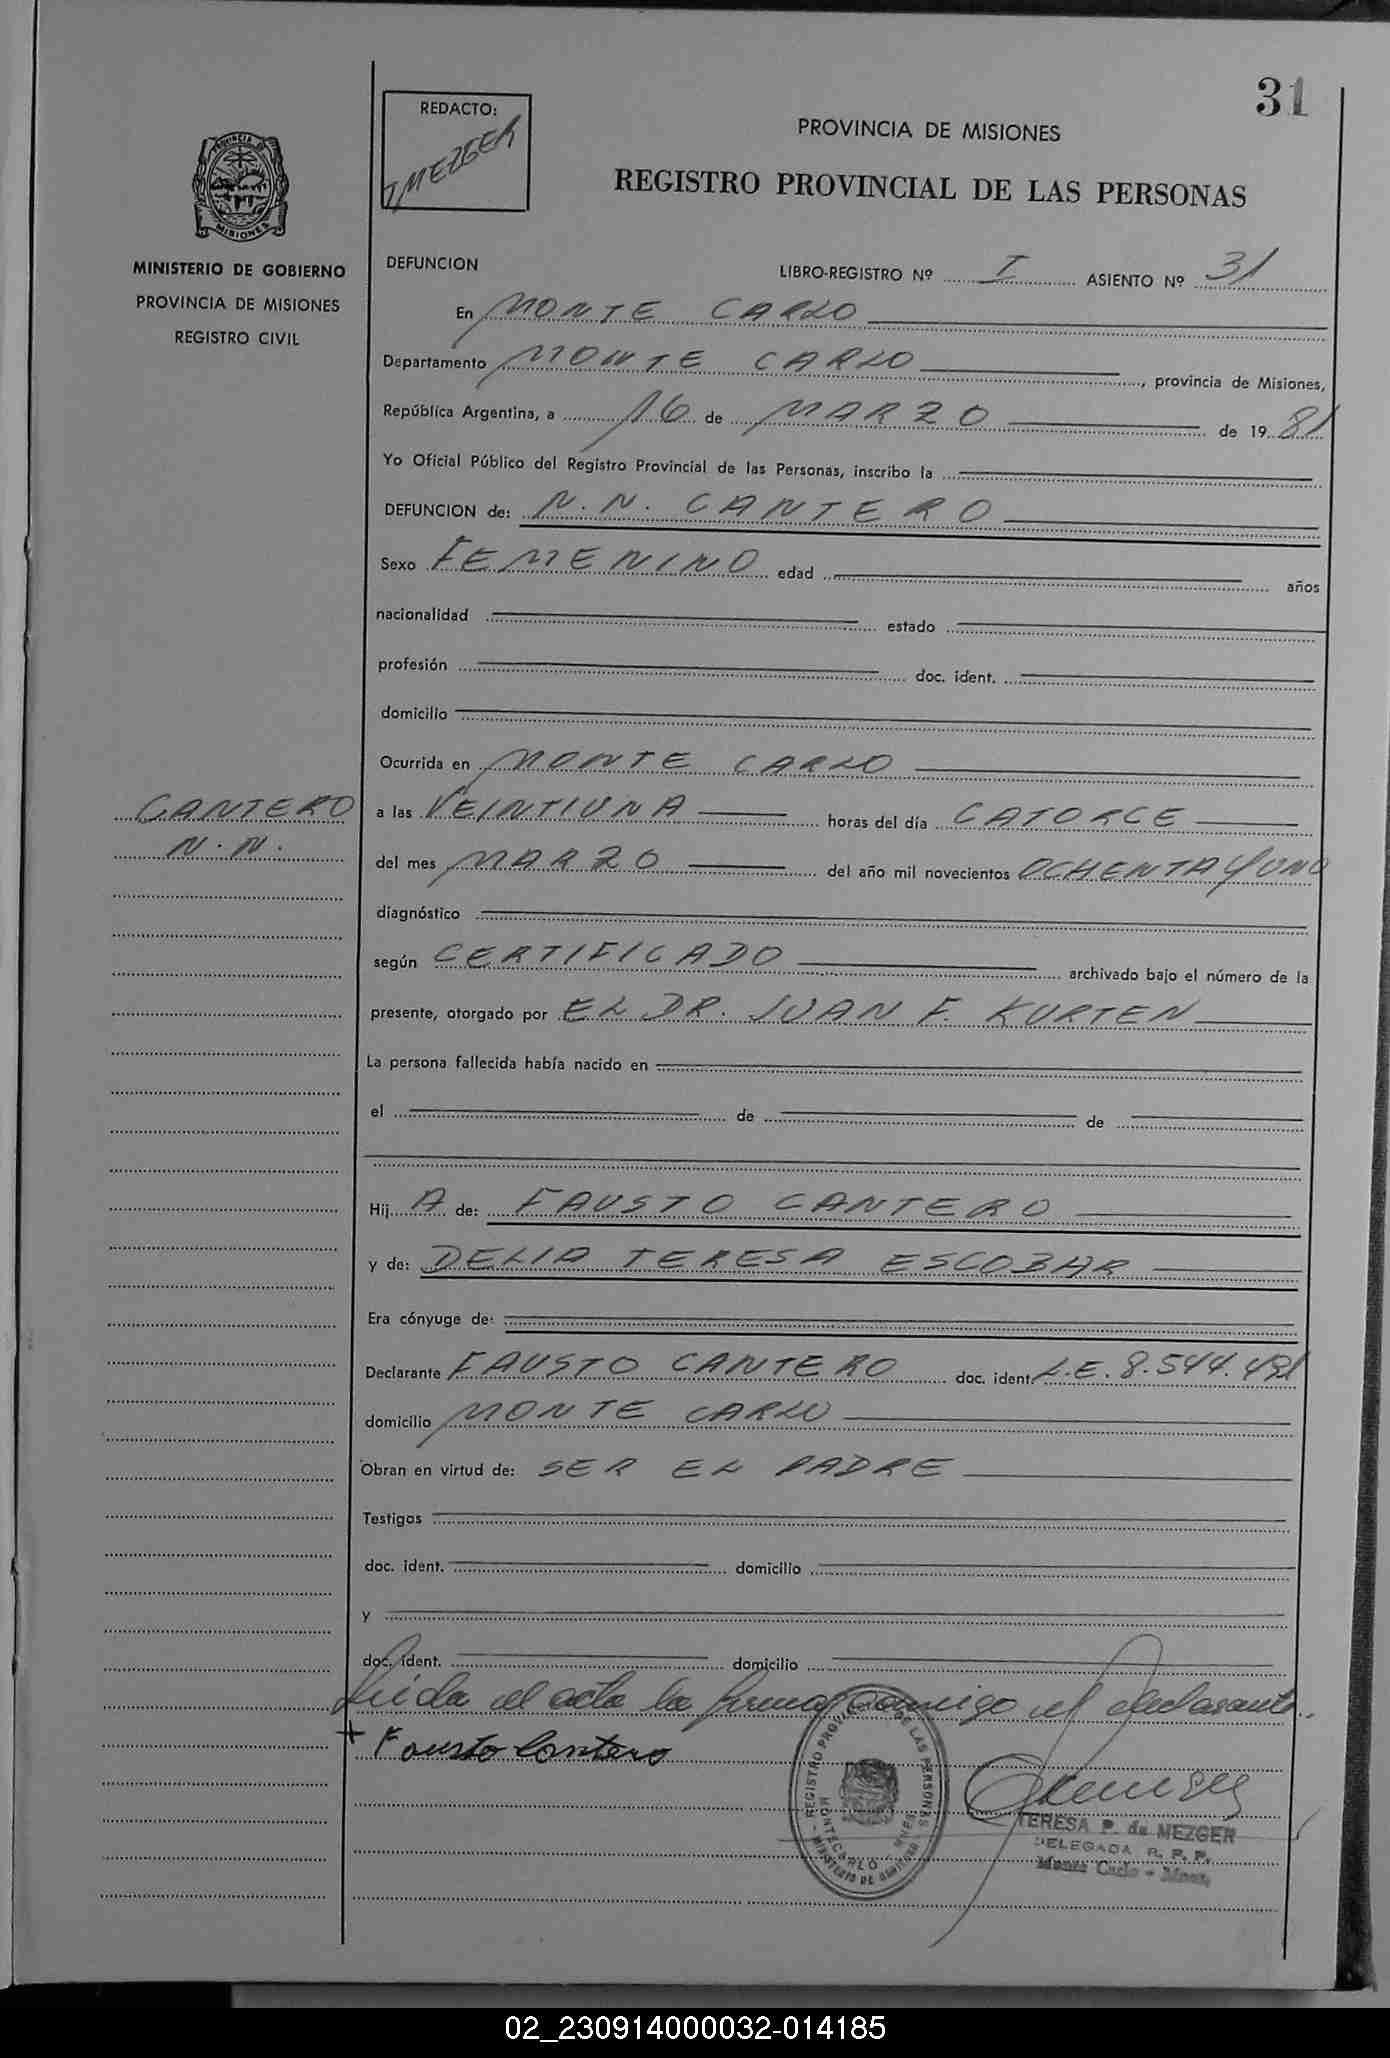 31
REDACTO:
T MEZGER
PROVINCIA DE MISIONES
REGISTRO PROVINCIAL DE LAS PERSONAS
PROVINCIA DE
MISIONES
MINISTERIO DE GOBIERNO
PROVINCIA DE MISIONES
REGISTRO CIVIL
DEFUNCION LIBRO-REGISTRO Nº I ASIENTO Nº 31
En MONTE CARLO
Departamento MONTE CARLO, provincia de Misiones,
República Argentina, a 16 de MARZO de 1981
Yo Oficial Público del Registro Provincial de las Personas, inscribo la
DEFUNCION de: N.N. CANTERO
Sexo FEMENINO edad años
nacionalidad estado
profesión doc. ident.
domicilio
Ocurrida en MONTE CARLO
CANTERO
N.N.
a las VEINTIUNA horas del día CATORCE
del mes MARZO del año mil novecientos OCHENTA Y UNO
diagnóstico
según CERTIFICADO archivado bajo el número de la
presente, otorgado por EL DR. JUAN F. KURTEN
La persona fallecida había nacido en
el de de
Hij A de: FAUSTO CANTERO
y de: DELIA TERESA ESCOBAR
Era cónyuge de:
Declarante FAUSTO CANTERO doc. ident. L.E. 8.544.491
domicilio MONTE CARLO
Obran en virtud de: SER EL PADRE
Testigos
doc. ident. domicilio
y
doc. ident. domicilio
Leida el acta la firma conmigo el declarante.
+ Fausto Cantero
REGISTRO PROVINCIAL DE LAS PERSONAS
MONTECARLO
MINISTERIO DE GOBIERNO
TERESA P. de MEZGER
DELEGADA R. P. P.
Monte Carlo - Mnes.
02_230914000032-014185